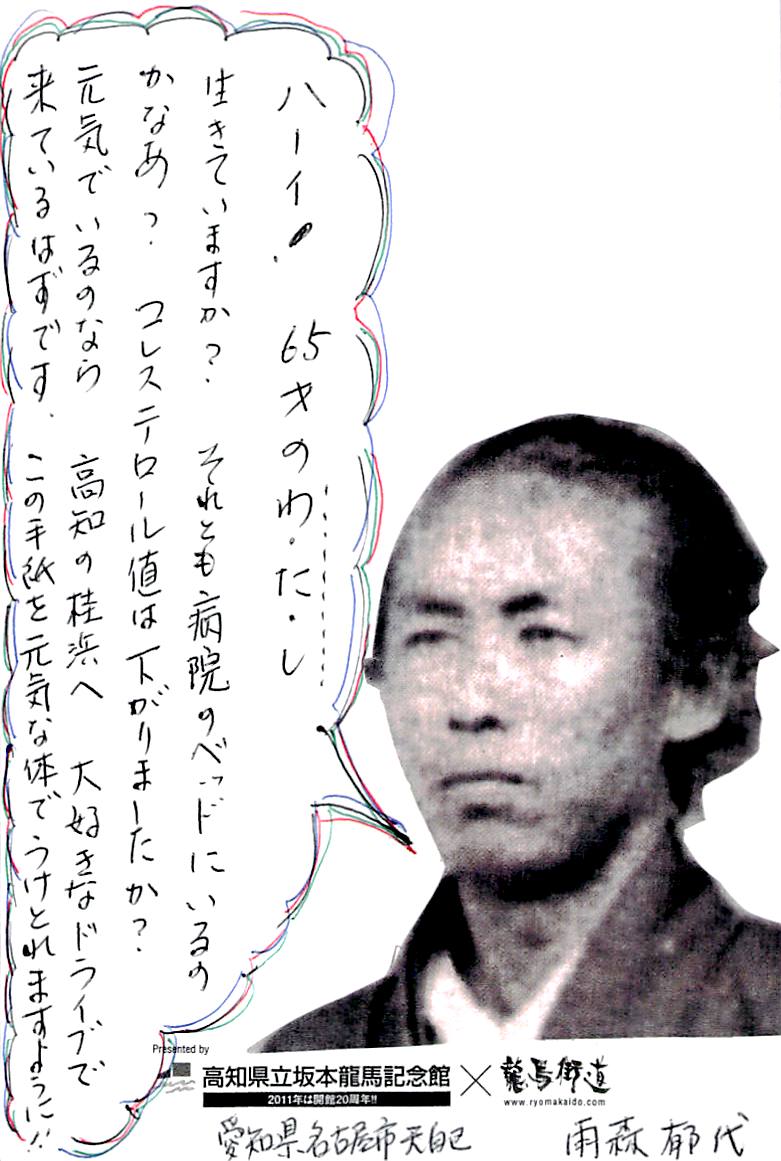 ハーイ! 65才のわ・た・し
生きていますか? それとも病院のベッドにいるの
かなあ? コレステロール値は下がりましたか?
元気でいるのなら 高知の桂浜へ 大好きなドライブで
来ているはずです. この手紙を元気な体でうけとれますように!!
Presented by
高知県立坂本龍馬記念館×龍馬街道
2011年は開館20周年!!
www.ryomakaido.com
愛知県名古屋市天白 雨森郁代